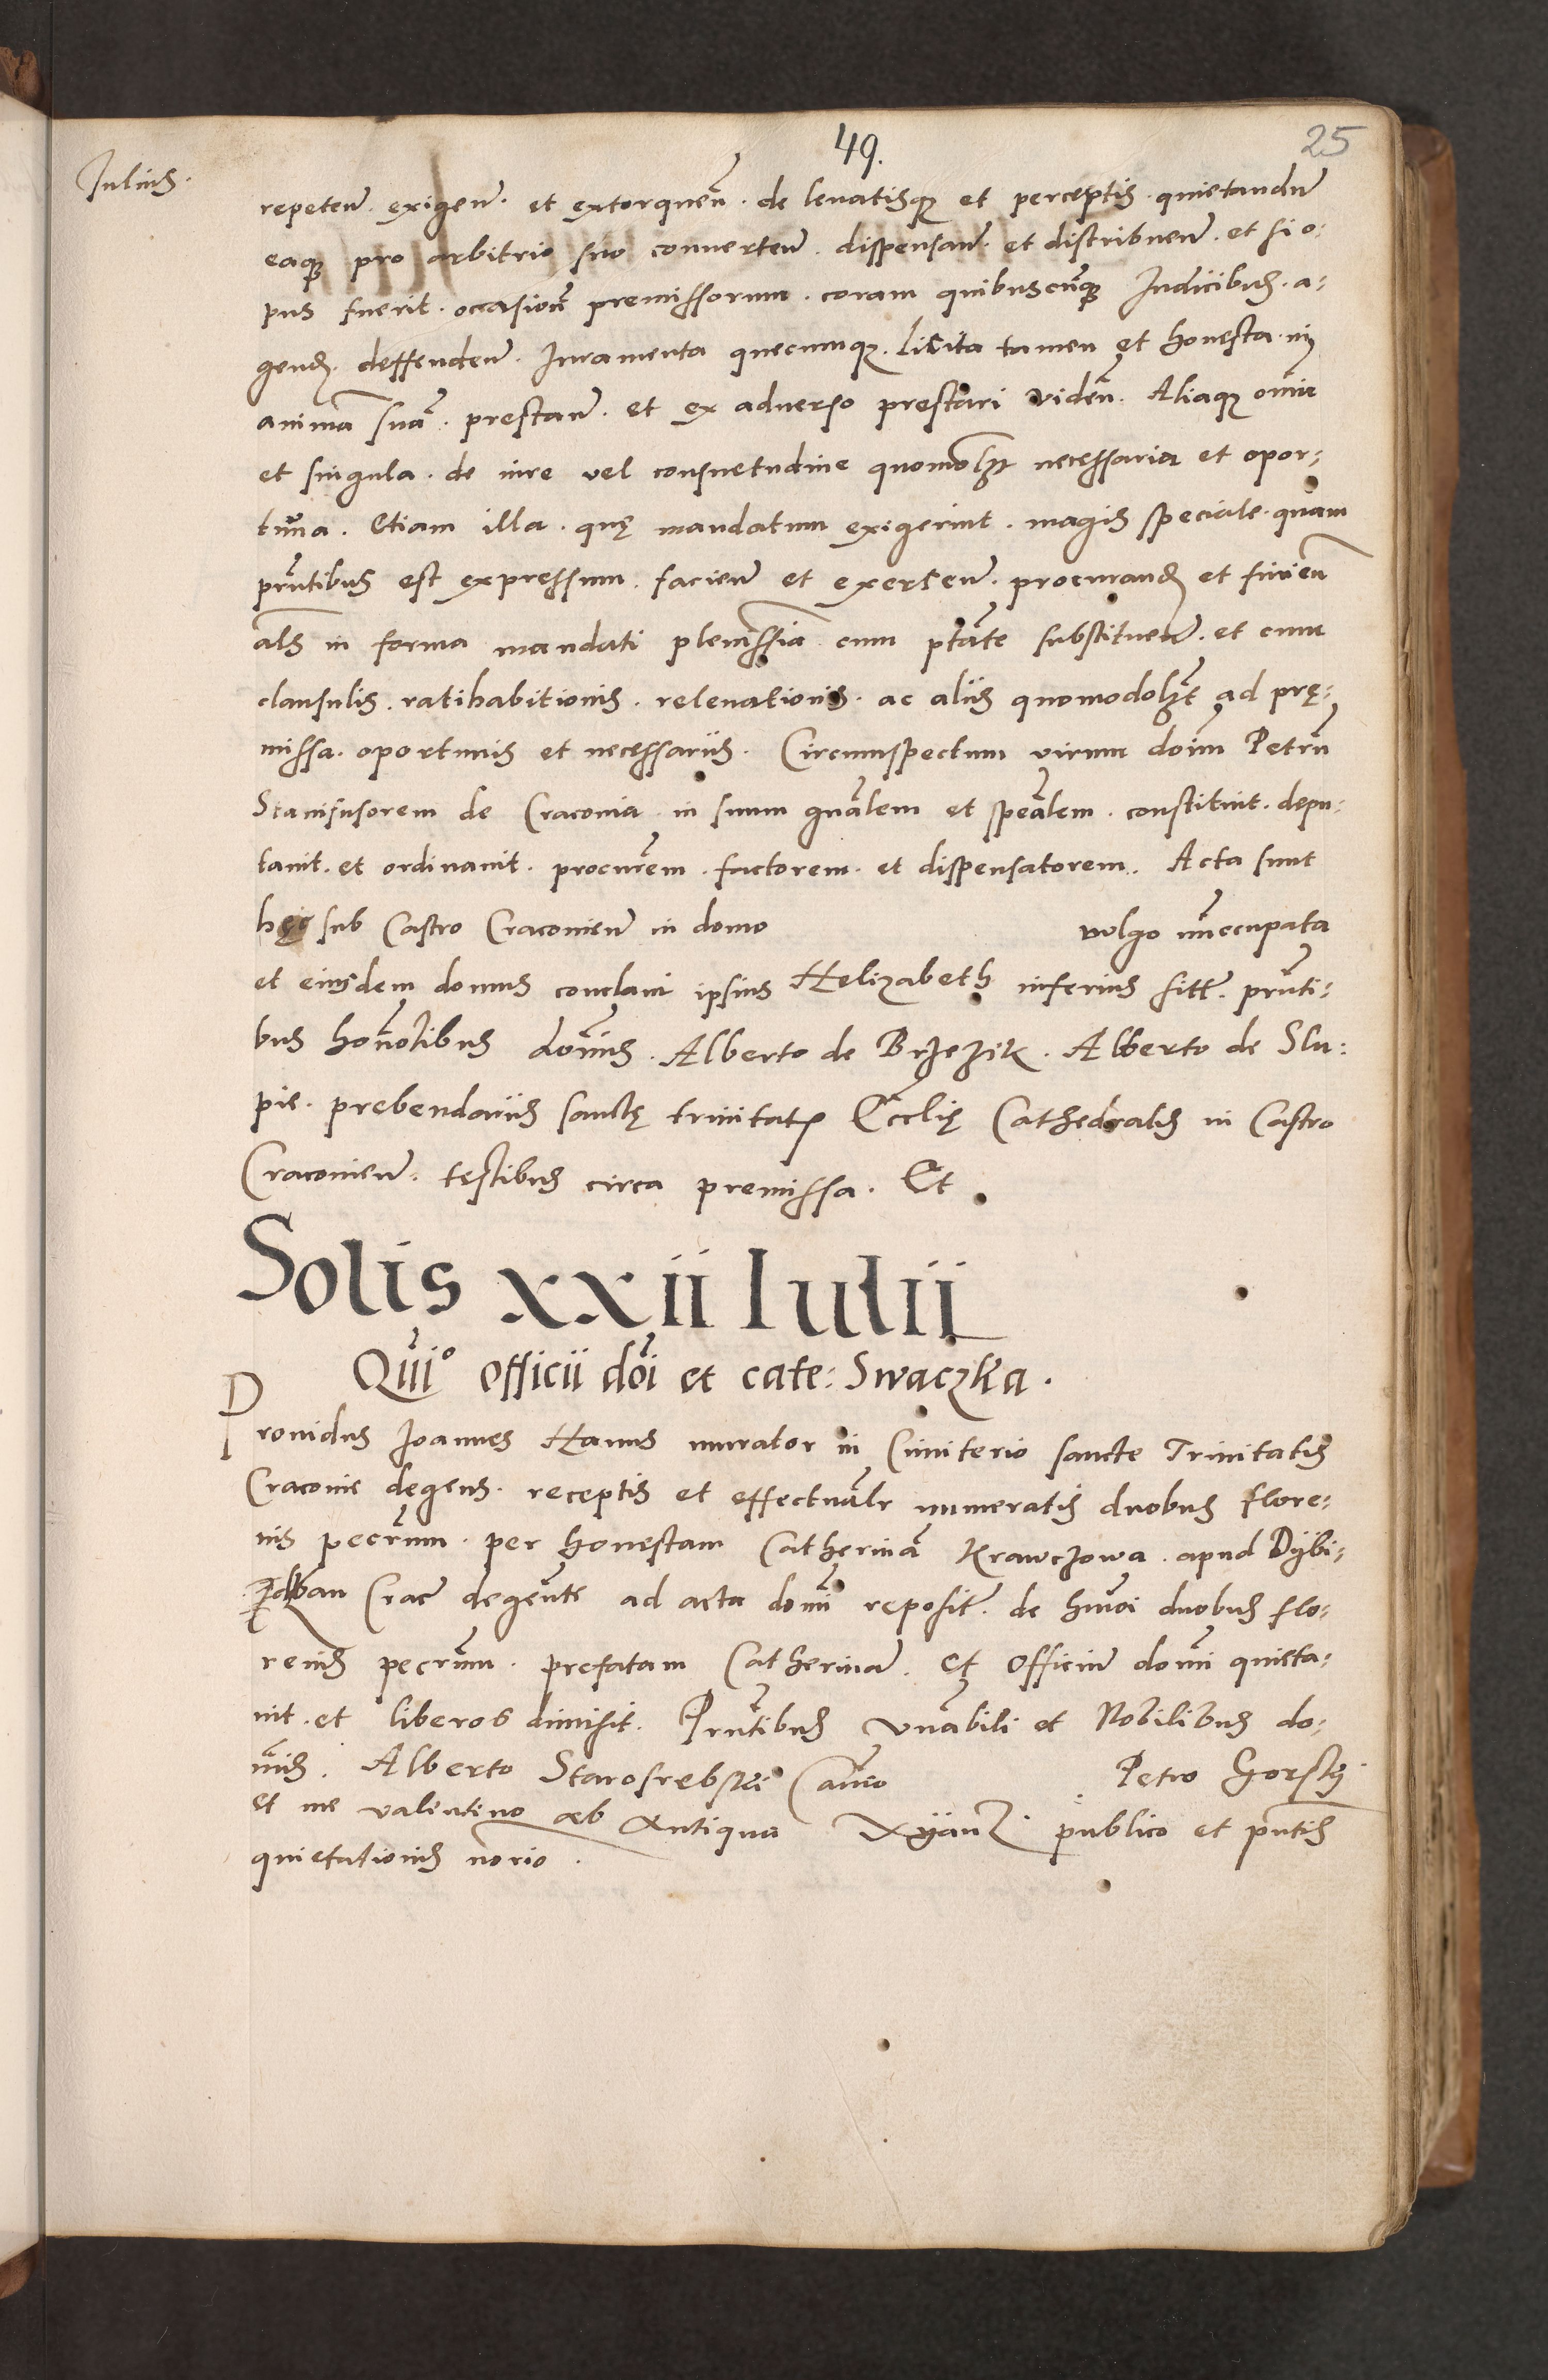 49.
25
Iulius.
repeteñ. exigeñ. et extorqueñ. de leuatisq; et perceptis. quietanduñ
eaq; pro arbitrio suo conuerteñ. dispensañ. et distribueñ. et si o-
pus fuerit. occasionẽ premissorum. coram quibuscũq; Iudicibus. a-
gend. deffendeñ. Iuramenta quecumq;. licita tamen et honesta. in
animã suã. prestañ. et ex aduerso prestari videñ. Aliaq; oñia
et singula. de iure vel consuetudine quomolꝫt necessaria et opor-
tuna. Etiam illa. quę mandatum exigerint. magis speciale. quam
pñtibus est expressum. facieñ et exerceñ. procurand et finieñ
als in forma mandati pleniss̃ia cum ptãte substitueñ. et cum
clausulis. ratihabitionis. releuationis. ac aliis quomodolꝫt ad prę-
missa. oportunis et necessariis. Circumspectum virum doim Petrũ
Stanifusorem de Craconia in suum gñalem et speãlem. constituit. depu-
tauit. et ordinauit. procurẽm. factorem. et dispensatorem. Acta sunt
hęc sub Castro Cracouieñ in domo vulgo nũccupata
et eiusdem domus conclaui ipsius Helizabeth inferius sitt. pñti-
bus hoñolibus doñis. Alberto de Brzezik. Alberto de Slu-
pie. prebendariis sanctę trinitatꝭ Ecclię Cathedralis in Castro
Cracouieñ. testibus circa premissa. Et
Solis xxii Iulii
Quiº Officii dõi et cate: Swaczka.
Prouidus Joannes Hanus murator in Cimiterio sancte Trinitatis
Craconie degens. receptis et effectuãlr numeratis duobus flore-
nis pecr̃um. per honestam Catherinã Krawczowa. apud Dybi-
Crac̃ degẽntẽ ad acta doñi reposit̃. de hmõi duobus flo-
renis pecr̃um. prefatam Catherinã. et Officiũ doñi quieta-
uit. et liberos dimisit. Pñtibus Vñabili et Nobilibus do-
mis. Alberto Starosrebski Cañico Petro Gorsky
et me valentino ab Antiqua publico et pñtis
quietationis norio.